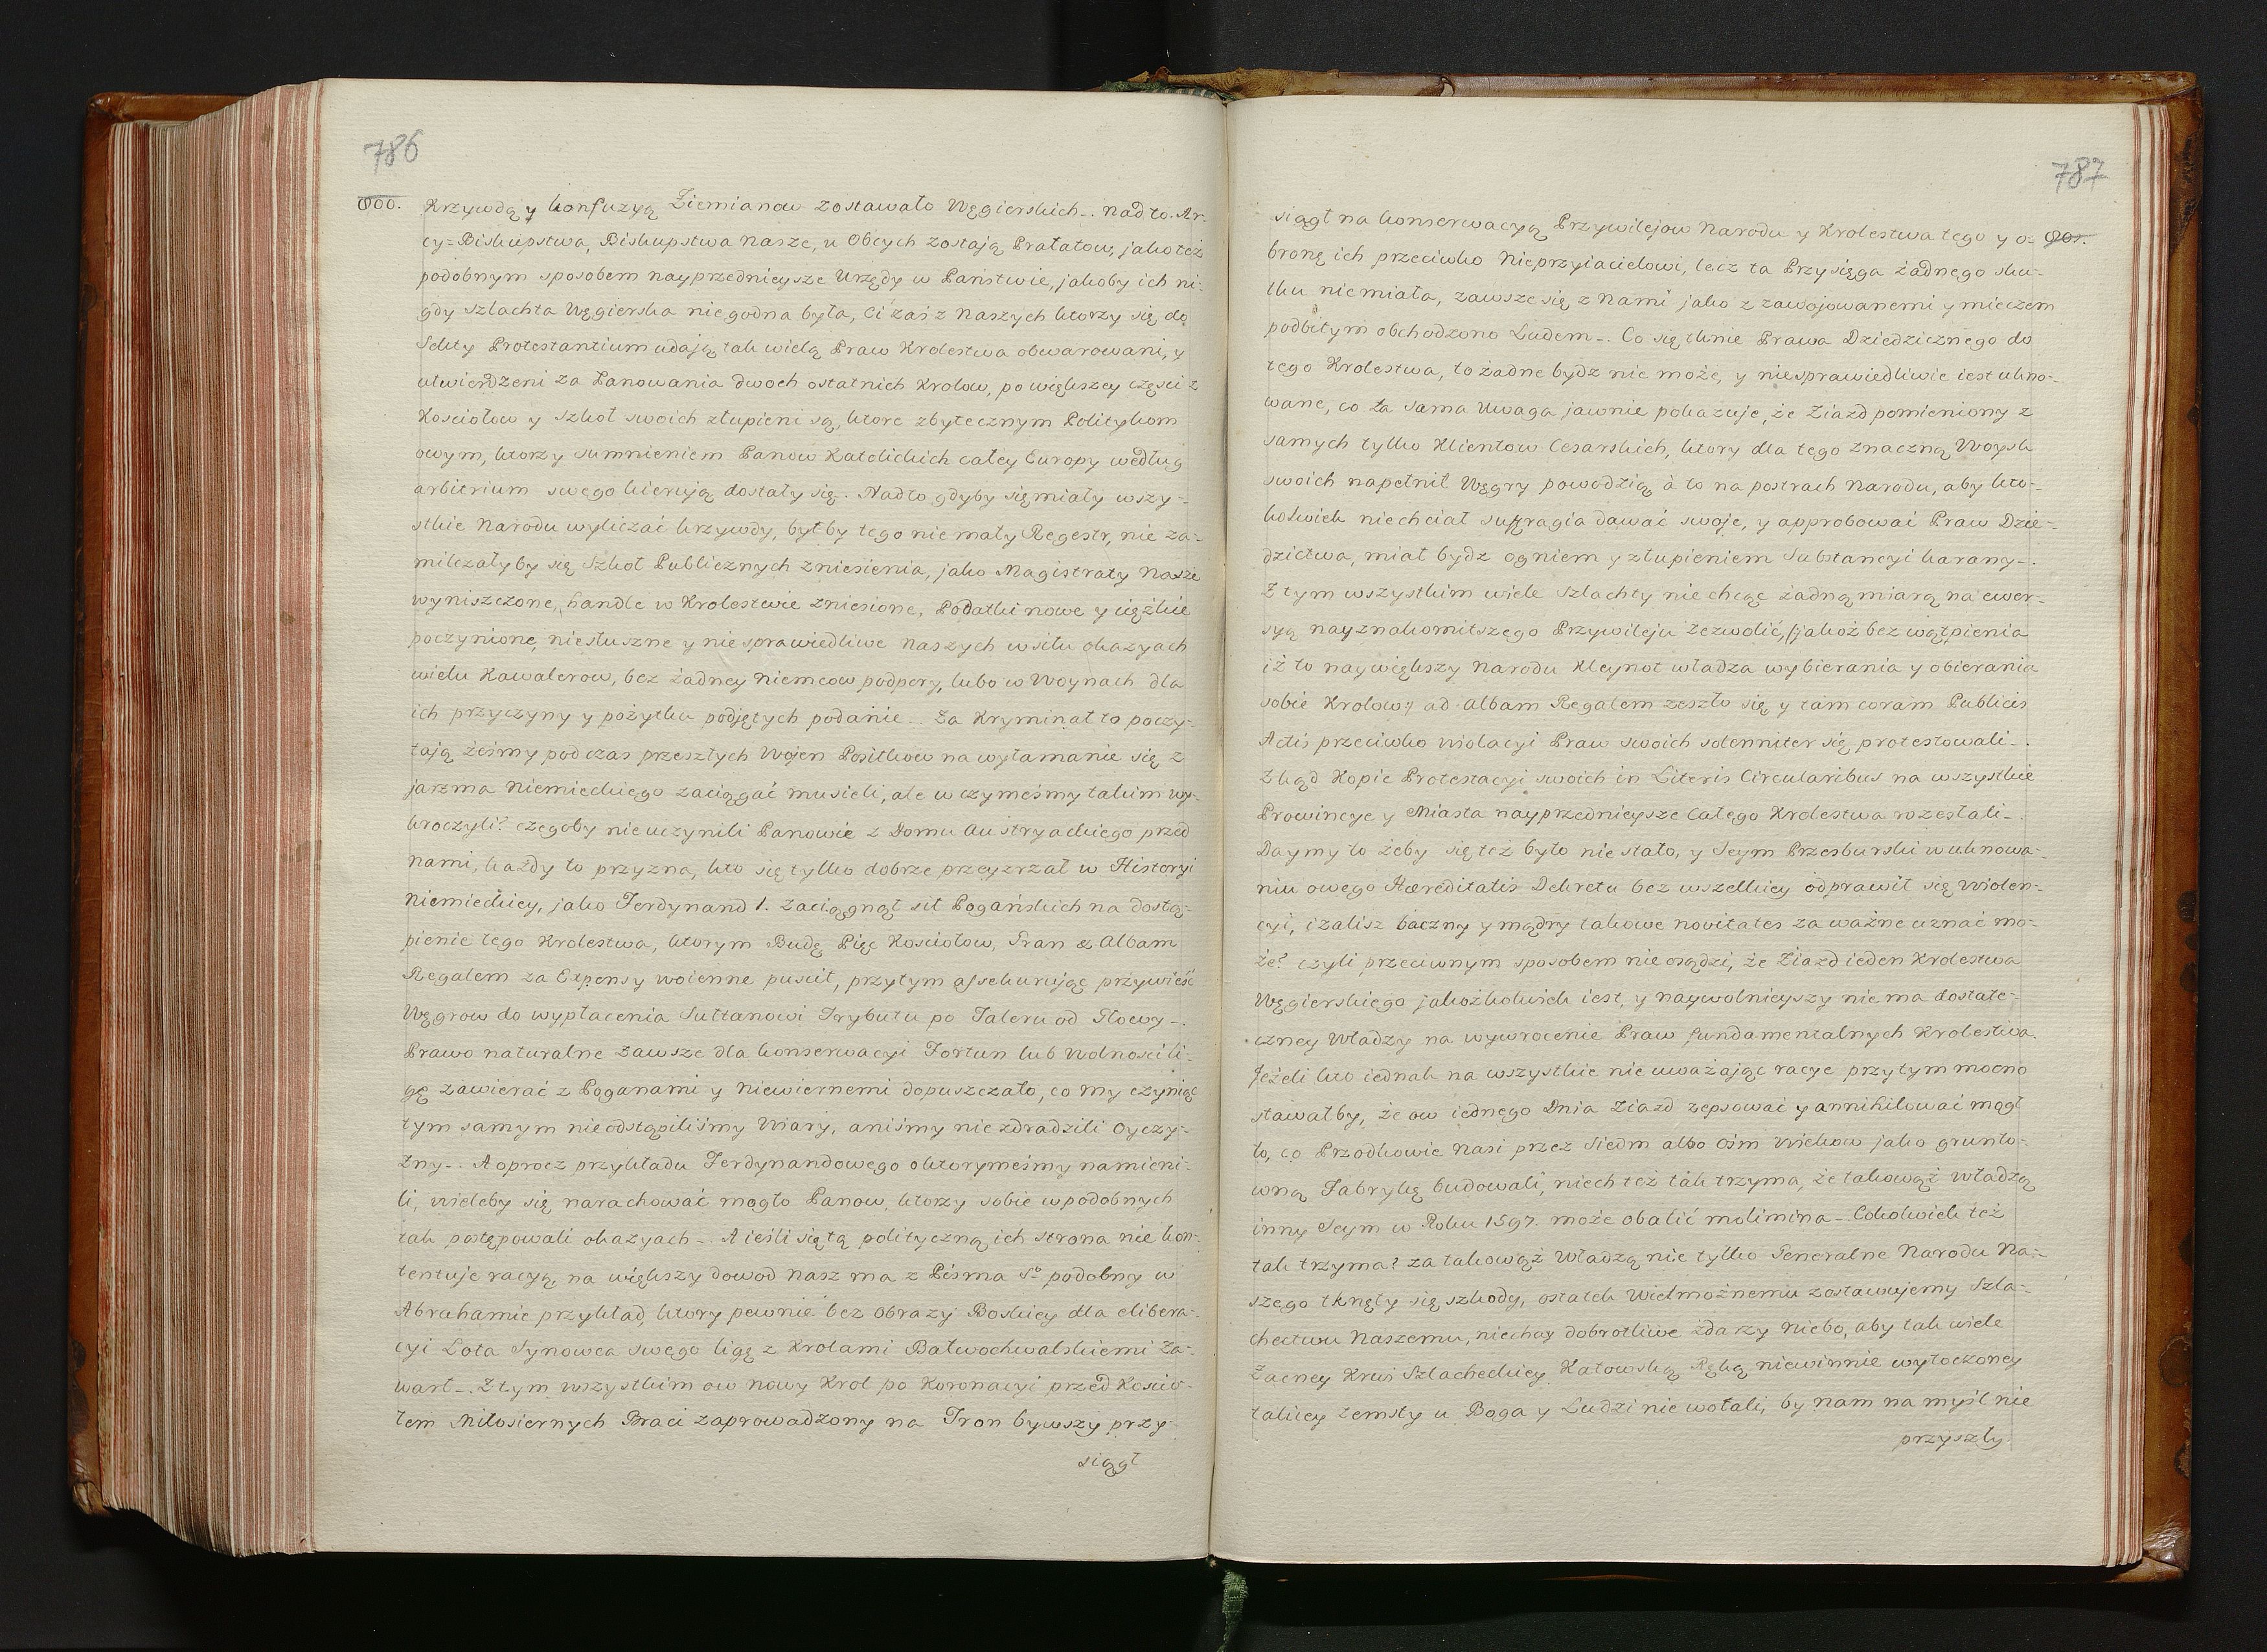 786
800. Krzywdą y konfuzyą Ziemianow zostawało Węgierskich_. nad to. Ar-
cy=Biskupstwa, Biskupstwa nasze, u Obcych zostają Prałatow, jako też
podobnym sposobem nayprzednieysze Urzędy w Państwie, jakoby ich ni-
gdy szlachta Węgierska niegodna była, Ci zaś z naszych ktorzy się do
Sekty Protestantium udają tak wielą Praw Krolestwa obwarowani, y
utwierdzeni za Panowania dwoch ostatnich Krolow, po większey części z
Kosciołow y szkoł swoich złupieni są, ktore zbytecznym Politykom
owym, ktorzy sumnieniem Panow Katolickich całey Europy według
arbitrium swego kierują dostały się. Nadto gdyby się miały wszy-
stkie Narodu wyliczać krzywdy, był by tego nie mały Regestr, nie za-
milczały by się Szkoł Publicznych zniesienia, jako Magistraty nasze
wyniszczone, handle w Krolestwie zniesione, Podatki nowe y ciężkie
poczynione, niesłuszne y niesprawiedliwe naszych w siłu okazyach
wielu Kawalerow, bez żadney Niemcow podpory, lubo w Woynach dla
ich przyczyny y pożytku podjętych podanie_. Za Kryminał to poczy-
tają żeśmy podczas przeszłych Wojen Posiłkow na wyłamanie się z
jarzma Niemieckiego zaciągać musieli, ale w czymeśmy takim wy-
kroczyli? czegoby nie uczynili Panowie z Domu Austryackiego przed
nami, każdy to przyzna, kto się tylko dobrze przeyzrzał w Historyi
Niemieckiey, jako Ferdynand 1. zaciągnął sił Pogańskich na dostą-
pienie tego Krolestwa, ktorym Budę Pięć Kosciołow, Gran & Albam
Regalem za Expensy woienne puscił, przytym assekurując przywieść
Węgrow do wypłacenia Sułtanowi Trybutu po Taleru od Głowy_.
Prawo naturalne zawsze dla konserwacyi Fortun lub Wolności li-
gę zawierać z Poganami y niewiernemi dopuszczało, co my czyniąc
tym samym nieodstąpiliśmy Wiary, aniśmy nie zdradzili Oyczy-
zny_. A oprocz przykładu Ferdynandowego o ktorymeśmy namieni-
li, wieleby się narachować mogło Panow, ktorzy sobie w podobnych
tak postępowali okazyach_. A ieśli się tą polityczną ich strona nie kon-
tentuje racyą, na większy dowod nasz ma z Pisma S° podobny w
Abrahamie przykład, ktory pewnie bez obrazy Boskiey dla elibera-
cyi Lota Synowca swego ligę z Krolami Bałwochwalskiemi za-
warł_. Z tym wszystkim ow nowy Krol po Koronacyi przed Koscio-
łem Miłosiernych Braci zaprowadzony na Tron bywszy przy-
siągł
787
801.
siągł na konserwacyą Przywilejow Narodu y Krolestwa tego y o-
bronę ich przeciwko Nieprzyiacielowi, lecz ta Przysięga żadnego sku-
tku niemiała, zawsze się z nami jako z zawojowanemi y mieczem
podbitym obchodzono Ludem_. Co się tknie Prawa Dziedzicznego do
tego Krolestwa, to żadne bydz nie może, y niesprawiedliwie iest ukno-
wane, co ta sama Uwaga jawnie pokazuje, że Ziazd pomieniony z
samych tylko Klientow Cesarskich, ktory dla tego znaczną Woysk
swoich napełnił Węgry powodzią à to na postrach Narodu, aby kto-
kolwiek niechciał suffragia dawać swoje, y approbować Praw Dzie-
dzictwa, miał bydz ogniem y złupieniem Substancyi karany_.
Z tym wszystkim wiele Szlachty nie chcąc żadną miarą na ewer-
syą nayznakomitszego Przywileju zezwolić, (jakoż bez wątpienia
iż to naywiększy Narodu Kleynot władza wybierania y obierania
sobie Krolow:) ad Albam Regalem zeszło się y tam coram Publicis
Actis przeciwko wiolacyi Praw swoich solenniter się protestowali_.
Zkąd Kopie Protestacyi swoich in Literis Circularibus na wszystkie
Prowincye y Miasta nayprzednieysze Całego Krolestwa rozesłali_.
Daymy to żeby się też było nie stało, y Seym Presburski w uknowa-
niu owego Hæreditatis Dekretu bez wszelkiey odprawił się wiolen-
cyi, izalisz baczny y mądry takowe novitates za ważne uznać mo-
że? czyli przeciwnym sposobem nie osądzi, że Ziazd ieden Krolestwa
Węgierskiego jakożkolwiek iest, y naywolnieyszy nie ma dostate-
czney Władzy na wywrocenie Praw fundamentalnych Krolestwa.
Jeżeli kto iednak na wszystkie nie uważając racye przytym mocno
stawałby, że ow iednego Dnia Ziazd zepsować y annihilować mogł
to, co Przodkowie nasi przez Siedm albo Ośm Wiekow jako grunto-
wną Fabrykę budowali, niech też tak trzyma, że takowąż władzą
inny Seym w Roku 1597. może obalić molimina_. Cokolwiek też
tak trzyma? za takowąż Władzą nie tylko Generalne Narodu Na-
szego tknęły się szkody, ostatek Wielmożnemu zostawujemy Szla-
chectwu Naszemu, niechay dobrotliwe zdarzy niebo, aby tak wiele
Zacney Krwi Szlacheckiey Katowską Ręką niewinnie wytoczoney
takiey zemsty u Boga y Ludzi nie wołali, by nam na myśl nie
przyszły